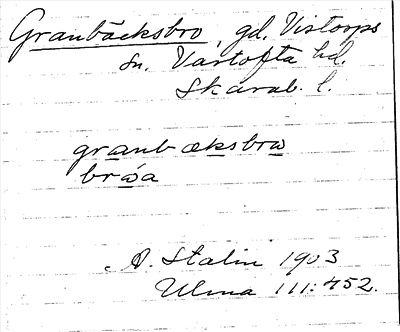 Granbäcksbro, gd. Vistorps
sn. Vartofta hd.
Skarab. l.
granbæksbrω
brωa
A. Stalin 1903
Ulma 111:452.